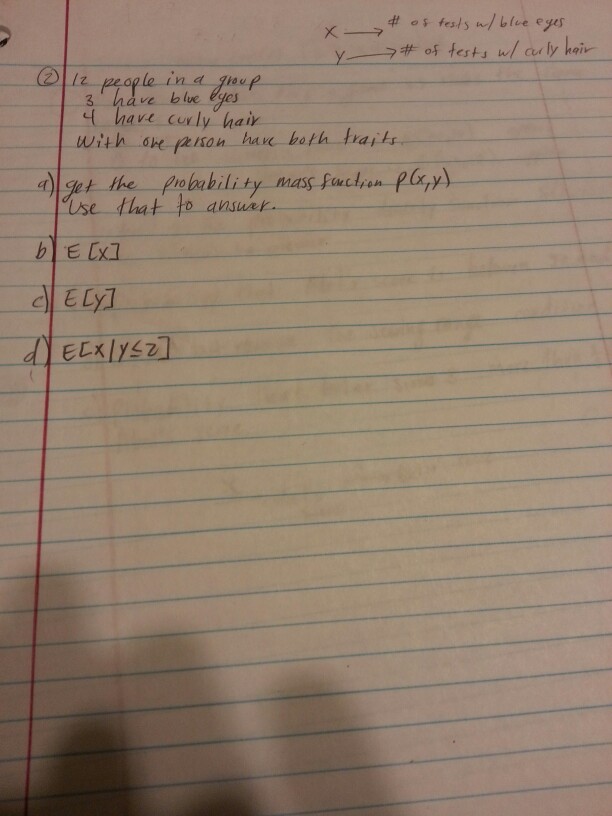 X → # of tests w/ blue eyes
y → # of tests w/ curly hair
② 12 people in a group
3 have blue eyes
4 have curly hair
With one person have both traits.
a) get the probability mass function p(x,y)
Use that to answer.
b) E[X]
c) E[Y]
d) E[X|Y≤2]